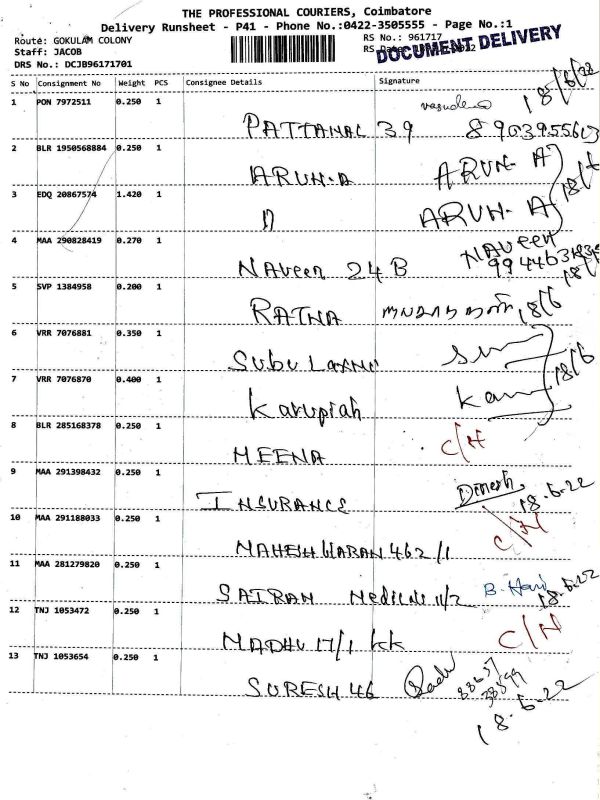 THE PROFESSIONAL COURIERS, Coimbatore
Delivery Runsheet - P41 - Phone No.:0422-3505555 - Page No.:1
Route: GOKULAM COLONY
RS No.: 961717
Staff: JACOB
RS Date:
DOCUMENT DELIVERY
DRS No.: DCJB96171701
S No Consignment No Weight PCS Consignee Details Signature
18/6/22
1 PON 7972511 0.250 1
PATTANAL 39 8903955603
2 BLR 1950568884 0.250 1
ARUN-A ARUN- A
18/6
3 EDQ 20867574 1.420 1
" ARUN- A
4 MAA 290828419 0.270 1
Naveen 24 B Naveen
18/6
5 SVP 1384958 0.200 1
RATNA 18/6
6 VRR 7076881 0.350 1
Subu Laxmi
18/6
7 VRR 7076870 0.400 1
Karupiah
8 BLR 285168378 0.250 1
MEENA C/N
9 MAA 291398432 0.250 1
INSURANCE Dinesh 18.6.22
10 MAA 291188033 0.250 1
MAHESHWARAN 462/1 C/N
11 MAA 281279820 0.250 1
SAIRAM Medicals 11/2 B. Hari 18.6.22
12 TNJ 1053472 0.250 1
MADHU 17/1 KK C/N
13 TNJ 1053654 0.250 1
SURESH 46
88657
38899
18.6.22